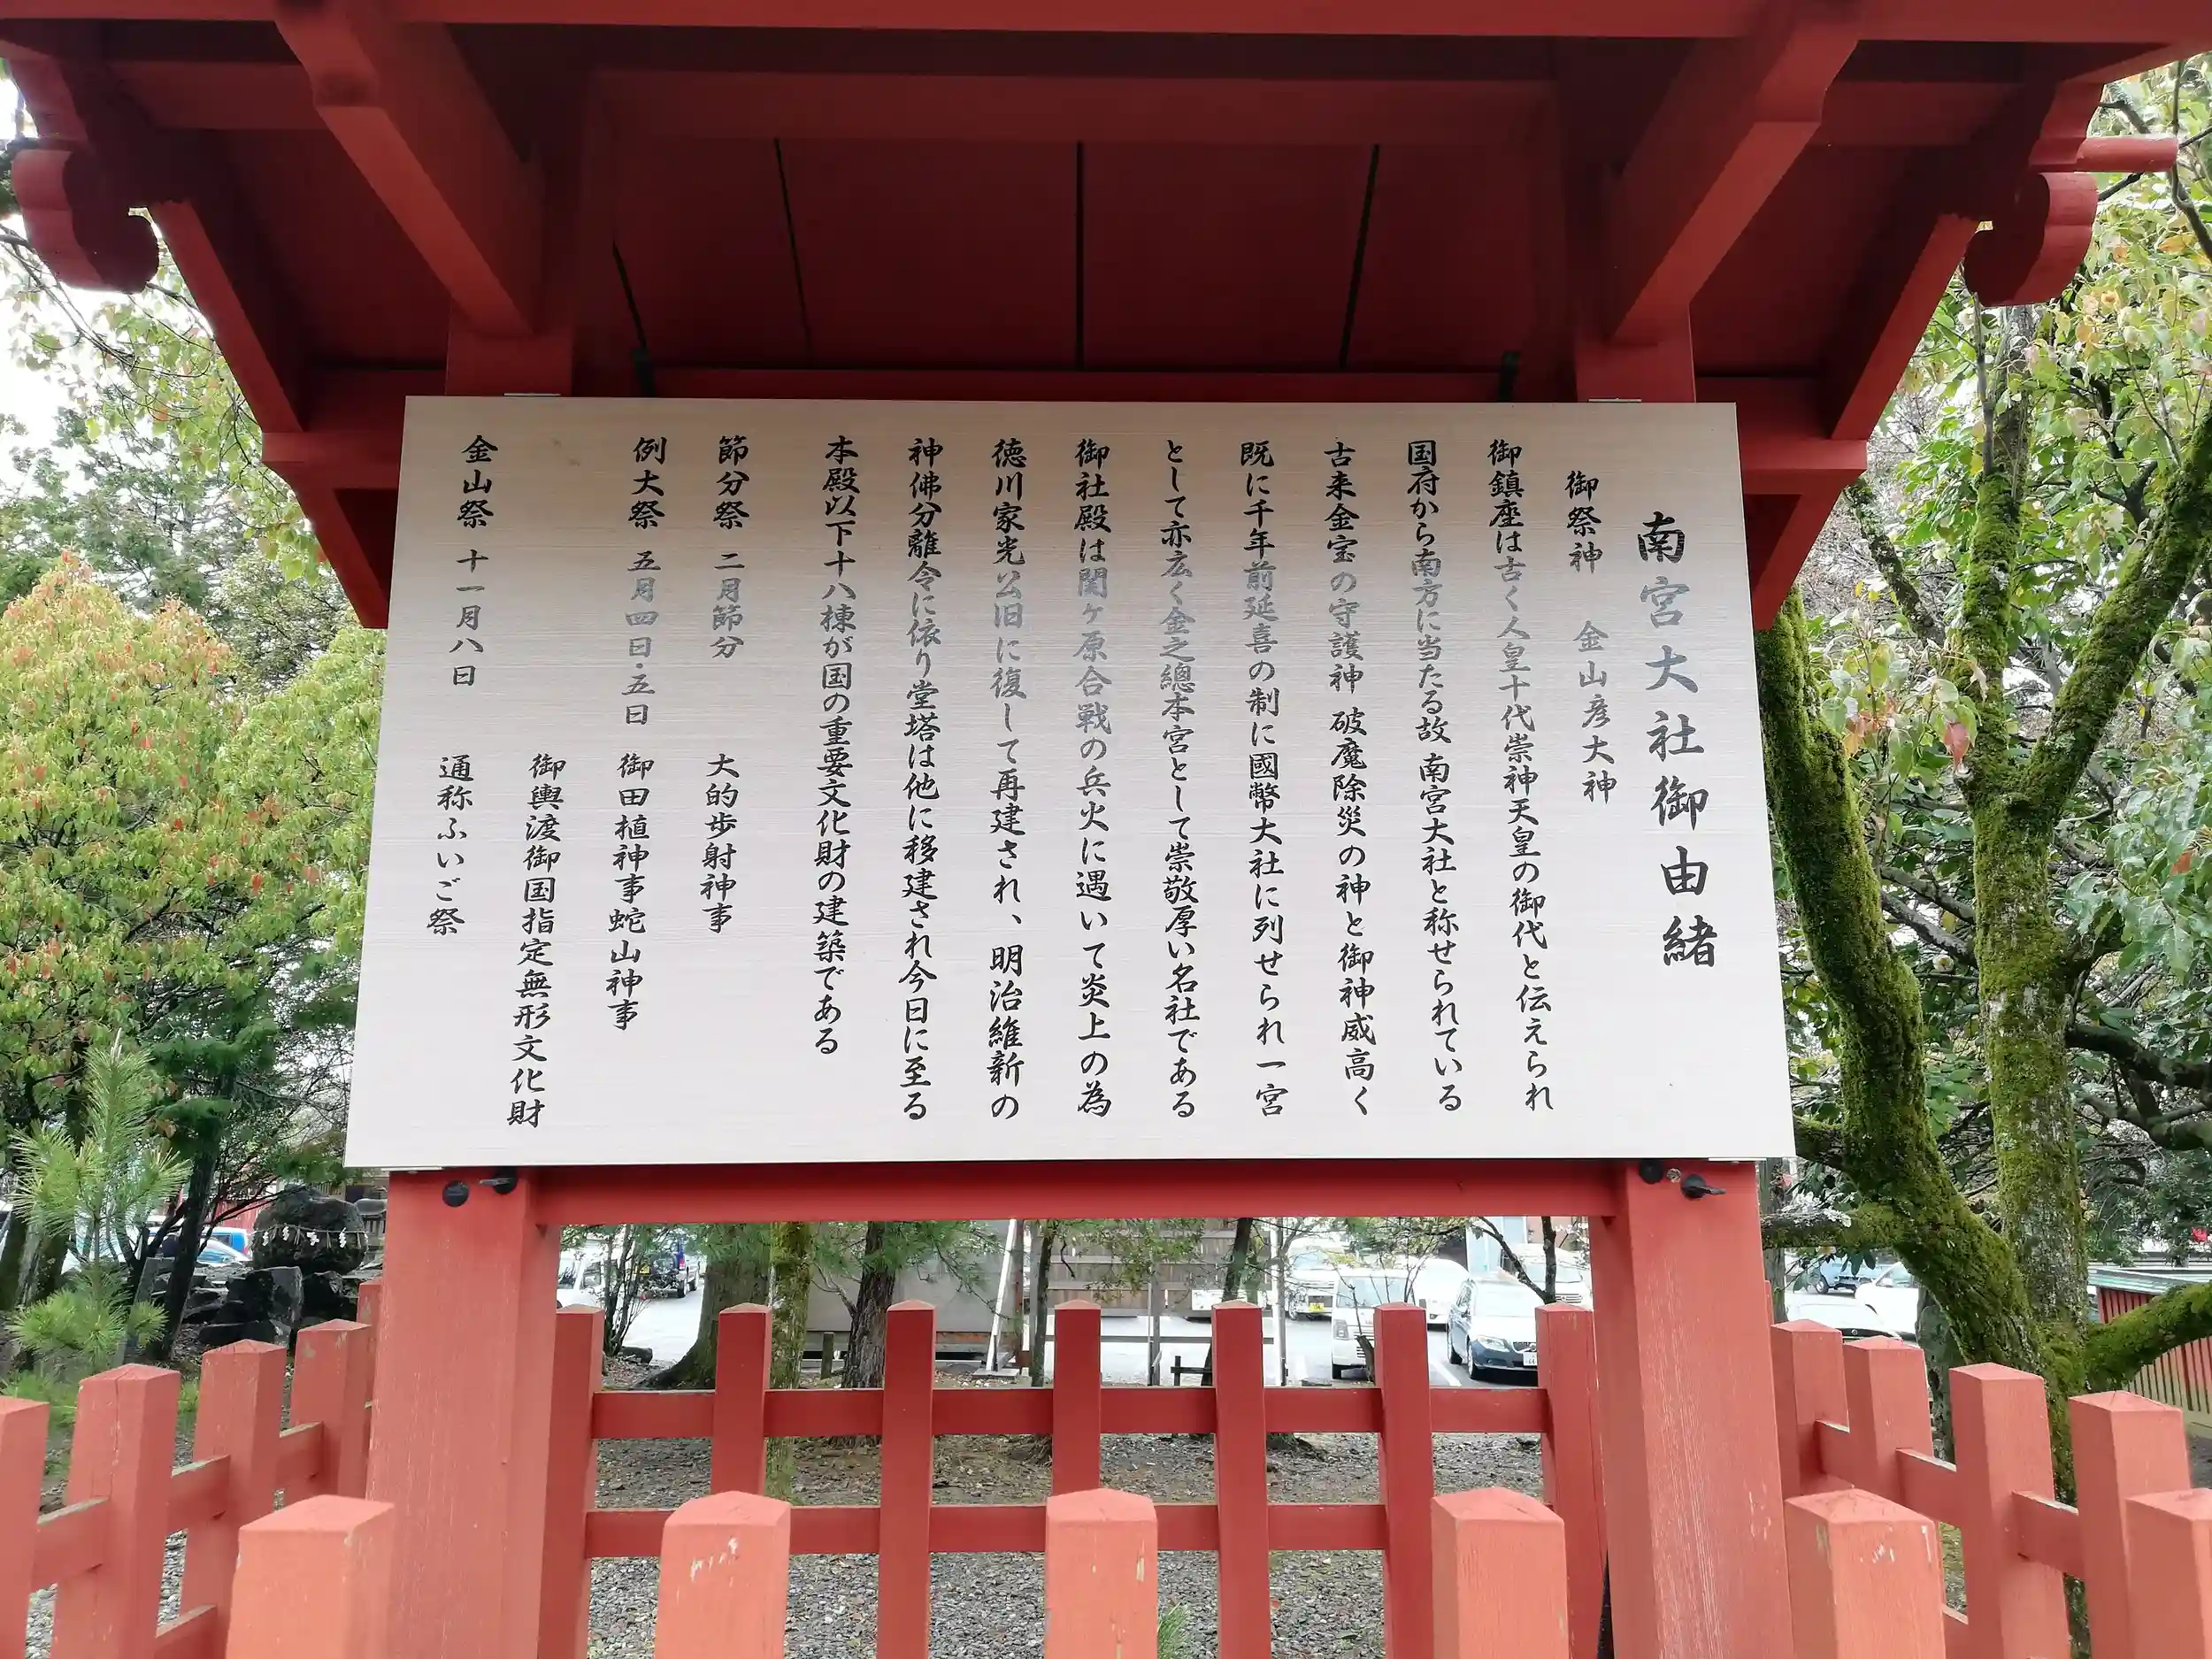 南宮大社御由緒
御祭神 金山彦大神
御鎮座は古く人皇十代崇神天皇の御代と伝えられ
国府から南方に当たる故 南宮大社と称せられている
古来金宝の守護神 破魔除災の神と御神威高く
既に千年前延喜の制に國幣大社に列せられ一宮
として亦広く金之總本宮として崇敬厚い名社である
御社殿は関ヶ原合戦の兵火に遇いて炎上の為
徳川家光公旧に復して再建され、明治維新の
神佛分離令に依り堂塔は他に移建され今日に至る
本殿以下十八棟が国の重要文化財の建築である
節分祭 二月節分 大的歩射神事
例大祭 五月四日・五日 御田植神事蛇山神事
御輿渡御国指定無形文化財
金山祭 十一月八日 通称ふいご祭